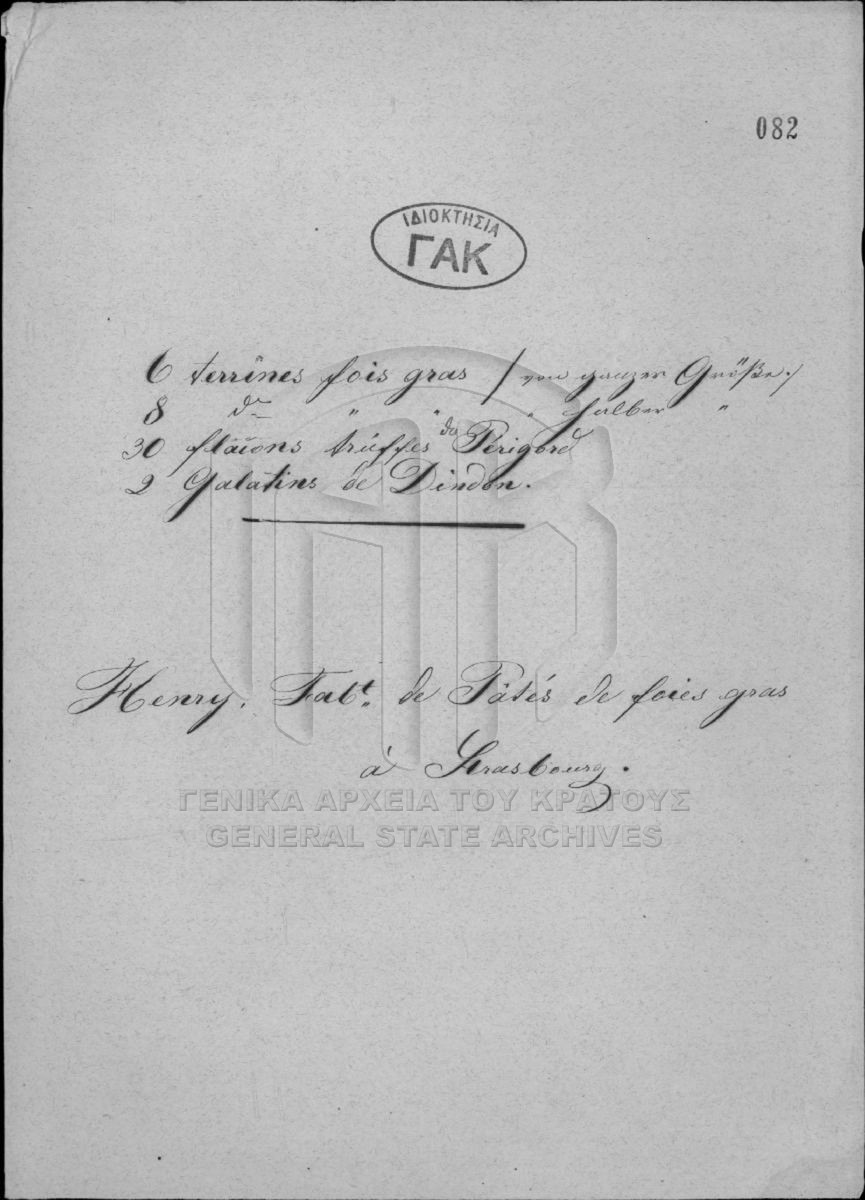 082
ΙΔΙΟΚΤΗΣΙΑ
ΓΑΚ
6 terrines fois gras /von ganzer Größe./
8 do " " " halber "
30 flaçons trüffes du Périgord
2 Galatins de Dindon.
Henry, Fabt. de Pâtés de foies gras
à Strasbourg.
ΓΕΝΙΚΑ ΑΡΧΕΙΑ ΤΟΥ ΚΡΑΤΟΥΣ
GENERAL STATE ARCHIVES